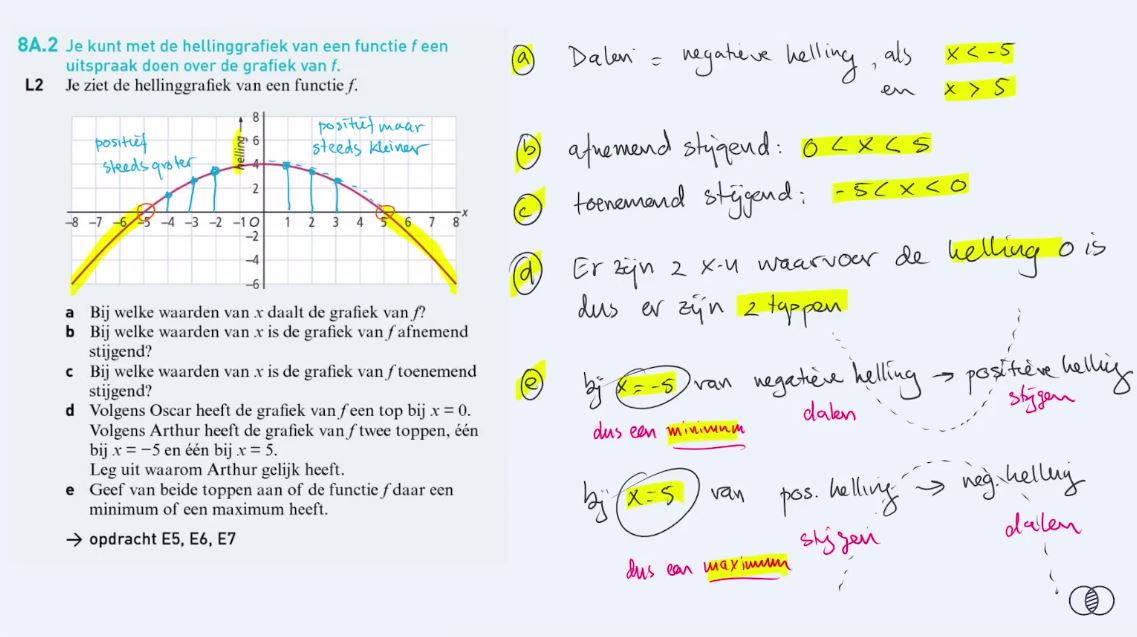 8A.2 Je kunt met de hellinggrafiek van een functie f een
uitspraak doen over de grafiek van f.
L2 Je ziet de hellinggrafiek van een functie f.
helling
8
6
4
2
-2
-4
-6
-8 -7 -6 -5 -4 -3 -2 -1 O 1 2 3 4 5 6 7 8 x
positief
steeds groter
positief maar
steeds kleiner
a Bij welke waarden van x daalt de grafiek van f?
b Bij welke waarden van x is de grafiek van f afnemend
stijgend?
c Bij welke waarden van x is de grafiek van f toenemend
stijgend?
d Volgens Oscar heeft de grafiek van f een top bij x = 0.
Volgens Arthur heeft de grafiek van f twee toppen, één
bij x = −5 en één bij x = 5.
Leg uit waarom Arthur gelijk heeft.
e Geef van beide toppen aan of de functie f daar een
minimum of een maximum heeft.
→ opdracht E5, E6, E7
a Dalen = negatieve helling, als x < -5
en x > 5
b afnemend stijgend: 0 < x < 5
c toenemend stijgend: -5 < x < 0
d Er zijn 2 x-n waarvoor de helling 0 is
dus er zijn 2 toppen
e bij x = -5 van negatieve helling → positieve helling
dalen stijgen
dus een minimum
bij x = 5 van pos. helling → neg. helling
stijgen dalen
dus een maximum